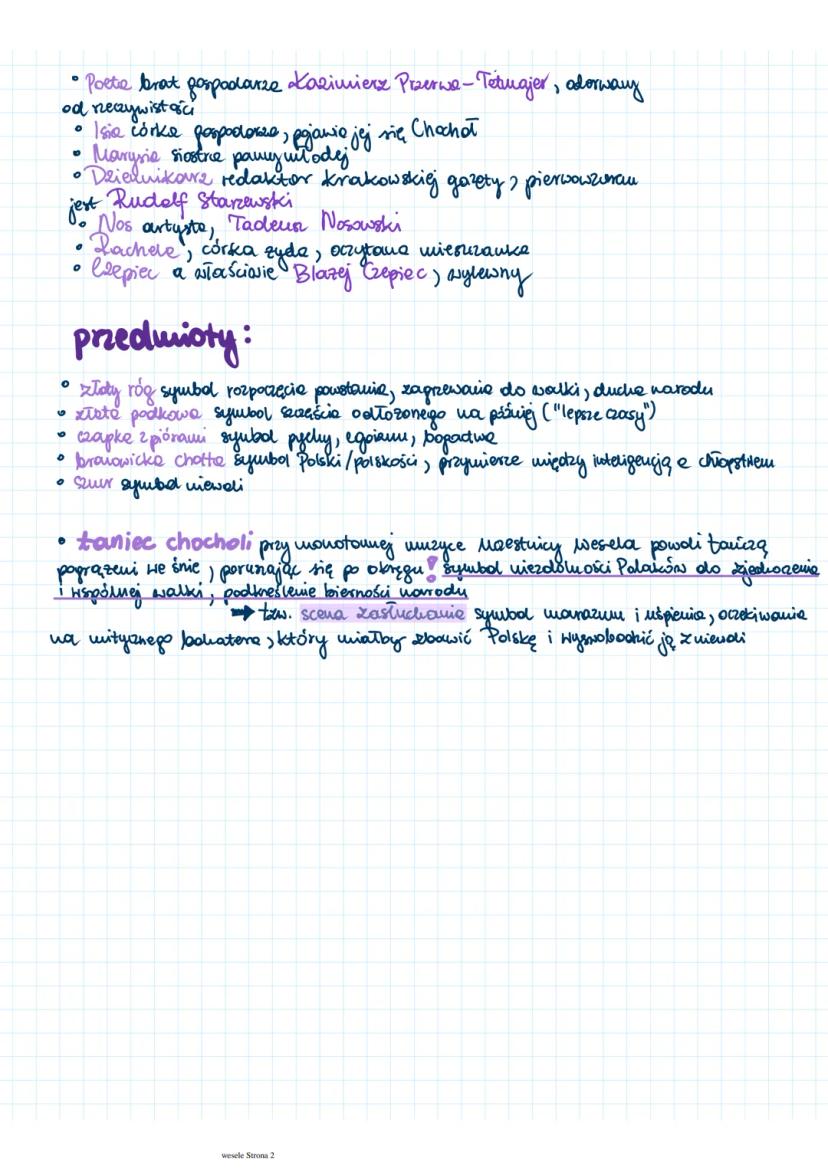 • Poeta brat gospodarza Kazimierz Przerwa-Tetmajer, oderwany
od rzeczywistości
• Isia córka gospodarza, pojawia jej się Chochoł
• Marysia siostra panny młodej
• Dziennikarz redaktor krakowskiej gazety, pierwowzorem
jest Rudolf Starzewski
• Nos artysta, Tadeusz Noskowski
• Rachela, córka żyda, oczytana mieszczanka
• Czepiec a właściwie Błażej Czepiec, wylewny
przedmioty:
• złoty róg symbol rozpoczęcia powstania, zagrzewania do walki, ducha narodu
• złota podkowa symbol szczęścia odłożonego na później ("lepsze czasy")
• czapka z piórami symbol pychy, egoizmu, bogactwa
• bronowicka chatta symbol Polski/polskości, przymierze między inteligencją a chłopstwem
• sznur symbol niewoli
• taniec chocholi przy monotonnej muzyce uczestnicy wesela powoli tańczą
pogrążeni we śnie, poruszając się po okręgu! symbol niezdolności Polaków do zjednoczenia
i wspólnej walki, podkreślenie bierności narodu
➡ tzw. scena zasłuchania symbol marazmu i uśpienia, oczekiwania
na mitycznego bohatera, który miałby zbawić Polskę i wyswobodzić ją z niewoli
wesele Strona 2